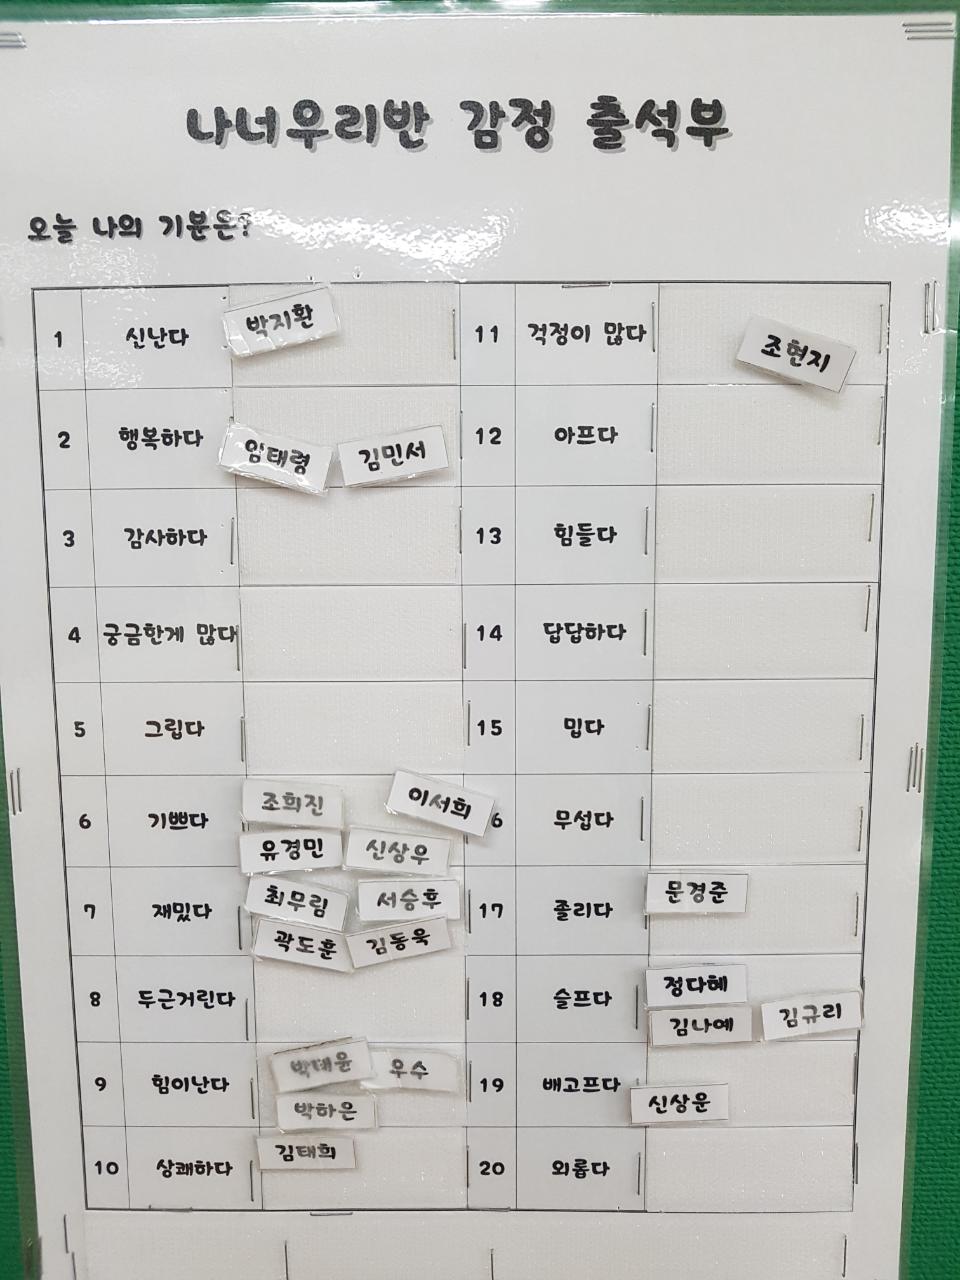 나너우리반 감정 출석부
오늘 나의 기분은?
1 신난다 박지환
2 행복하다 임태령 김민서
3 감사하다
4 궁금한게 많다
5 그립다
6 기쁘다 조희진 이서희
유경민 신상우
7 재밌다 최무림 서승후
곽도훈 김동욱
8 두근거린다
9 힘이난다 박태윤 우수
박하은
10 상쾌하다 김태희
11 걱정이 많다 조현지
12 아프다
13 힘들다
14 답답하다
15 밉다
6 무섭다
17 졸리다 문경준
18 슬프다 정다혜
김나예 김규리
19 배고프다 신상운
20 외롭다